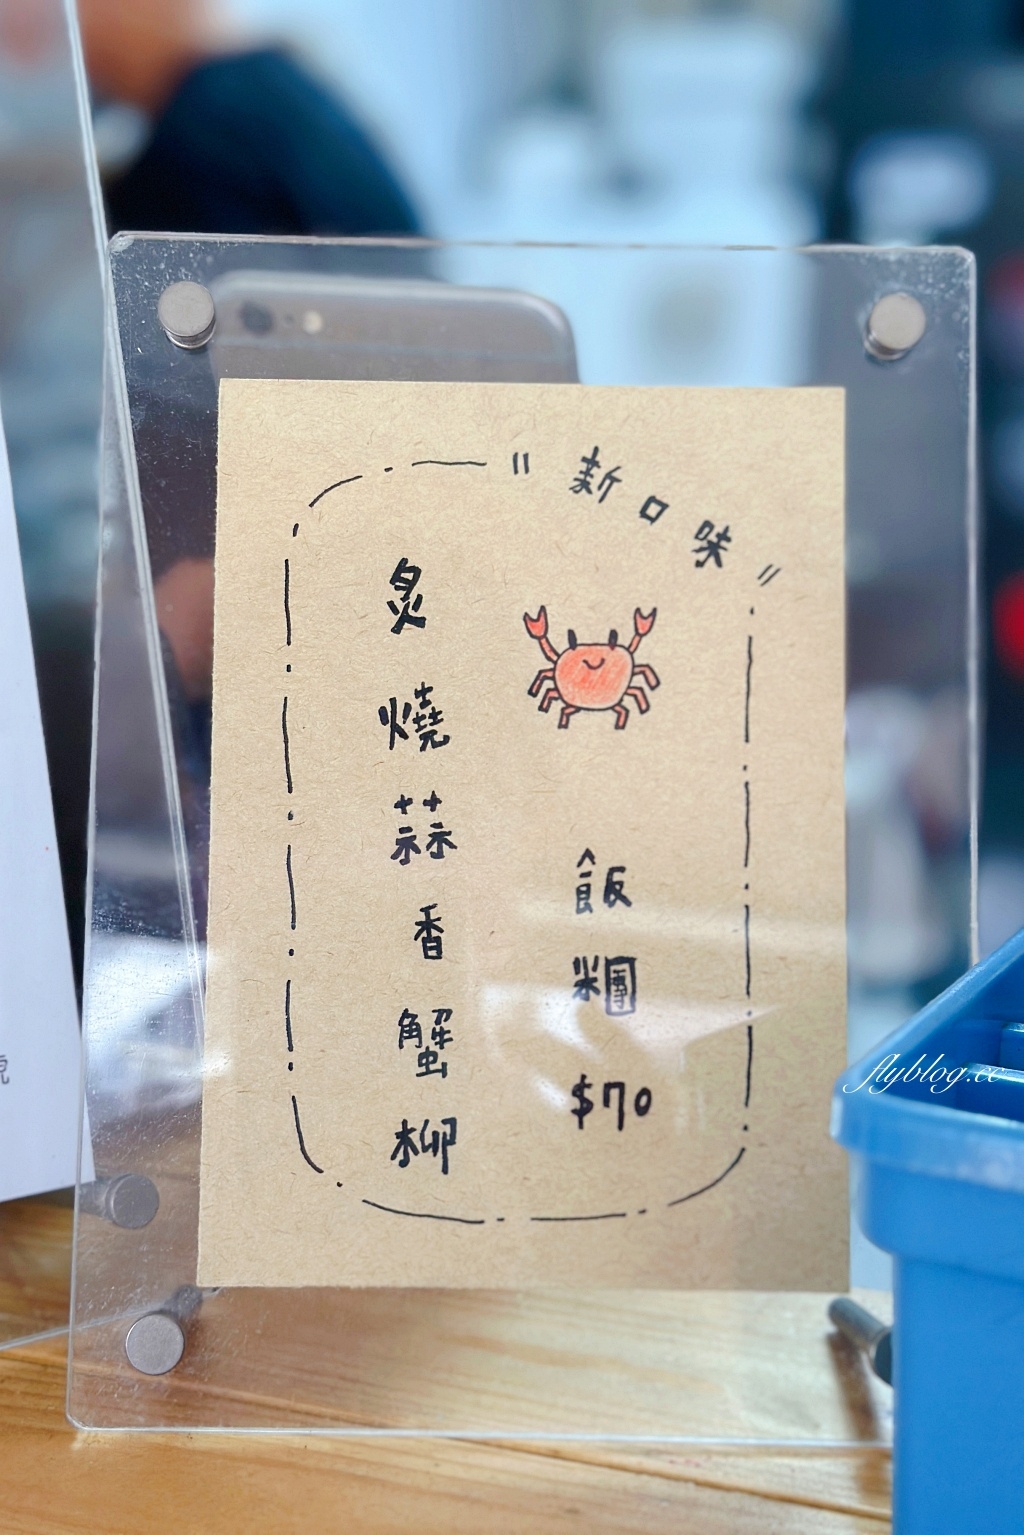 "新口味"
炙燒蒜香蟹柳
飯糰
$70
flyblog.cc